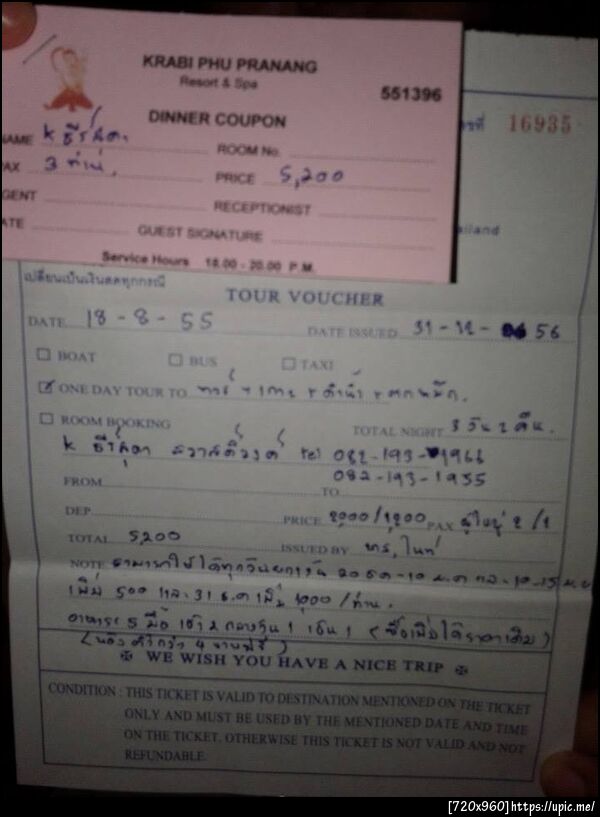 KRABI PHU PRANANG
Resort & Spa
551396
DINNER COUPON
NAME K ธีร์สุดา ROOM No.
PAX 3 ท่าน. PRICE 5,200
GENT RECEPTIONIST
ATE GUEST SIGNATURE
Service Hours 18.00 - 20.00 P.M.
ที่ 16935
ailand
เปลี่ยนเป็นเงินสดทุกกรณี
TOUR VOUCHER
DATE 18-8-55 DATE ISSUED 31-12-56
BOAT BUS TAXI
ONE DAY TOUR TO ทัวร์ 4 เกาะ + ดำน้ำ + ตกหมึก.
ROOM BOOKING TOTAL NIGHT 3 วัน 2 คืน.
K ธีร์สุดา สวาสดิ์วงศ์ tel 082-193-1966
082-193-1955
FROM TO
DEP. PRICE 2000/1200 PAX ผู้ใหญ่ 2/1
TOTAL 5200 ISSUED BY
NOTE สามารถใช้ได้ทุกวันยกเว้น 20 ธค-10 ม.ค และ 10-15 เมย
เพิ่ม 500 และ 31 ธ.ค เพิ่ม 1000/ท่าน.
อาหาร 5 มื้อ เช้า 2 กลางวัน 1 เย็น 1 (ซื้อเพิ่มได้ราคาเดิม)
(น้อง ต่ำกว่า 4 ขวบฟรี)
WE WISH YOU HAVE A NICE TRIP
CONDITION : THIS TICKET IS VALID TO DESTINATION MENTIONED ON THE TICKET
ONLY AND MUST BE USED BY THE MENTIONED DATE AND TIME
ON THE TICKET. OTHERWISE THIS TICKET IS NOT VALID AND NOT
REFUNDABLE.
[720x960]https://upic.me/